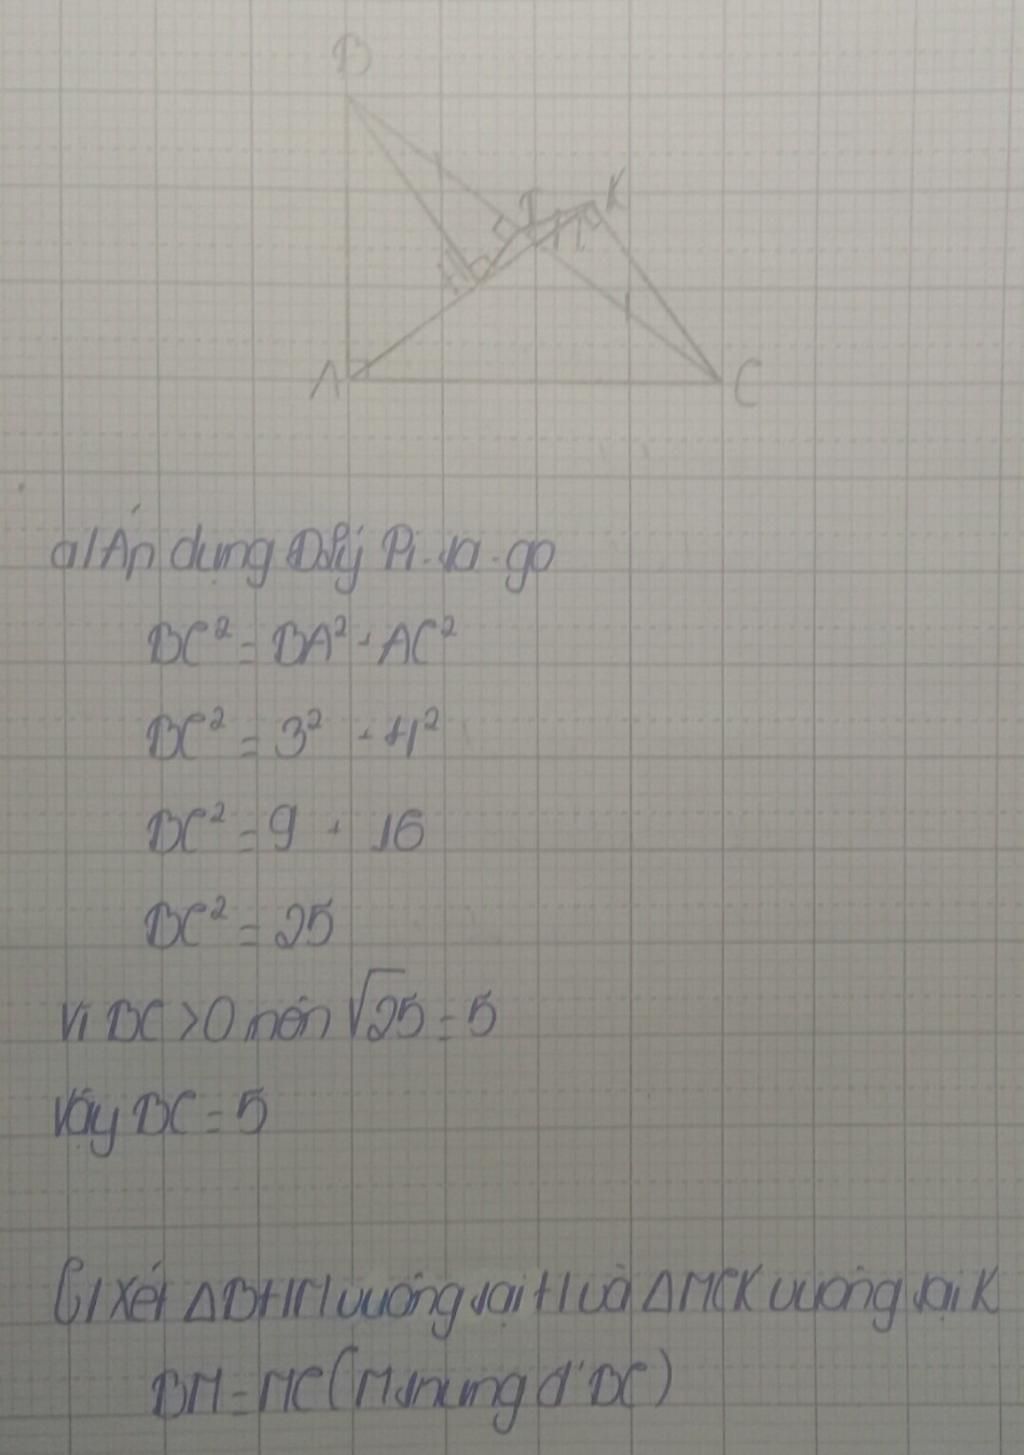 B
I
K
H
M
A
C
a/ Áp dụng Đ.lý Pi-ta-go
BC² = BA² + AC²
BC² = 3² + 4²
BC² = 9 + 16
BC² = 25
Vì BC > 0 nên √25 = 5
Vậy BC = 5
b/ Xét ΔBHM vuông tại H và ΔMCK vuông tại K
BM = MC (M trung đ' BC)